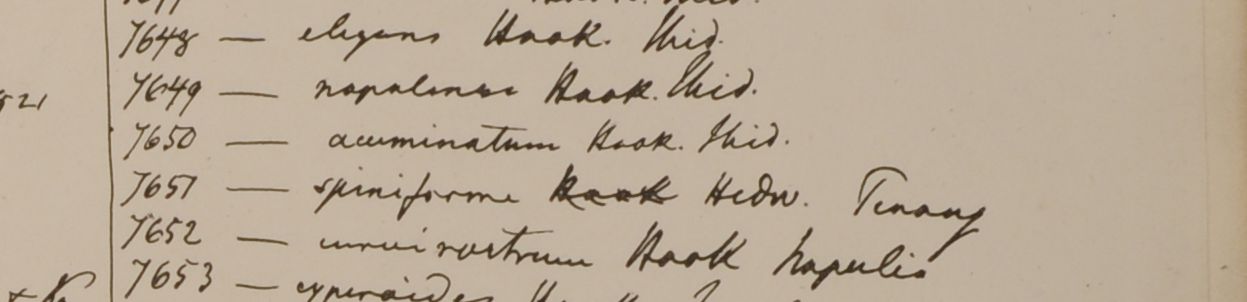 7648 — elegans Hook. Ibid.
7649 — napalense Hook. Ibid.
7650 — acuminatum Hook. Ibid.
7651 — spiniforme Hook Hedw. Penang
7652 — curvirostrum Hook Napalia
7653 —